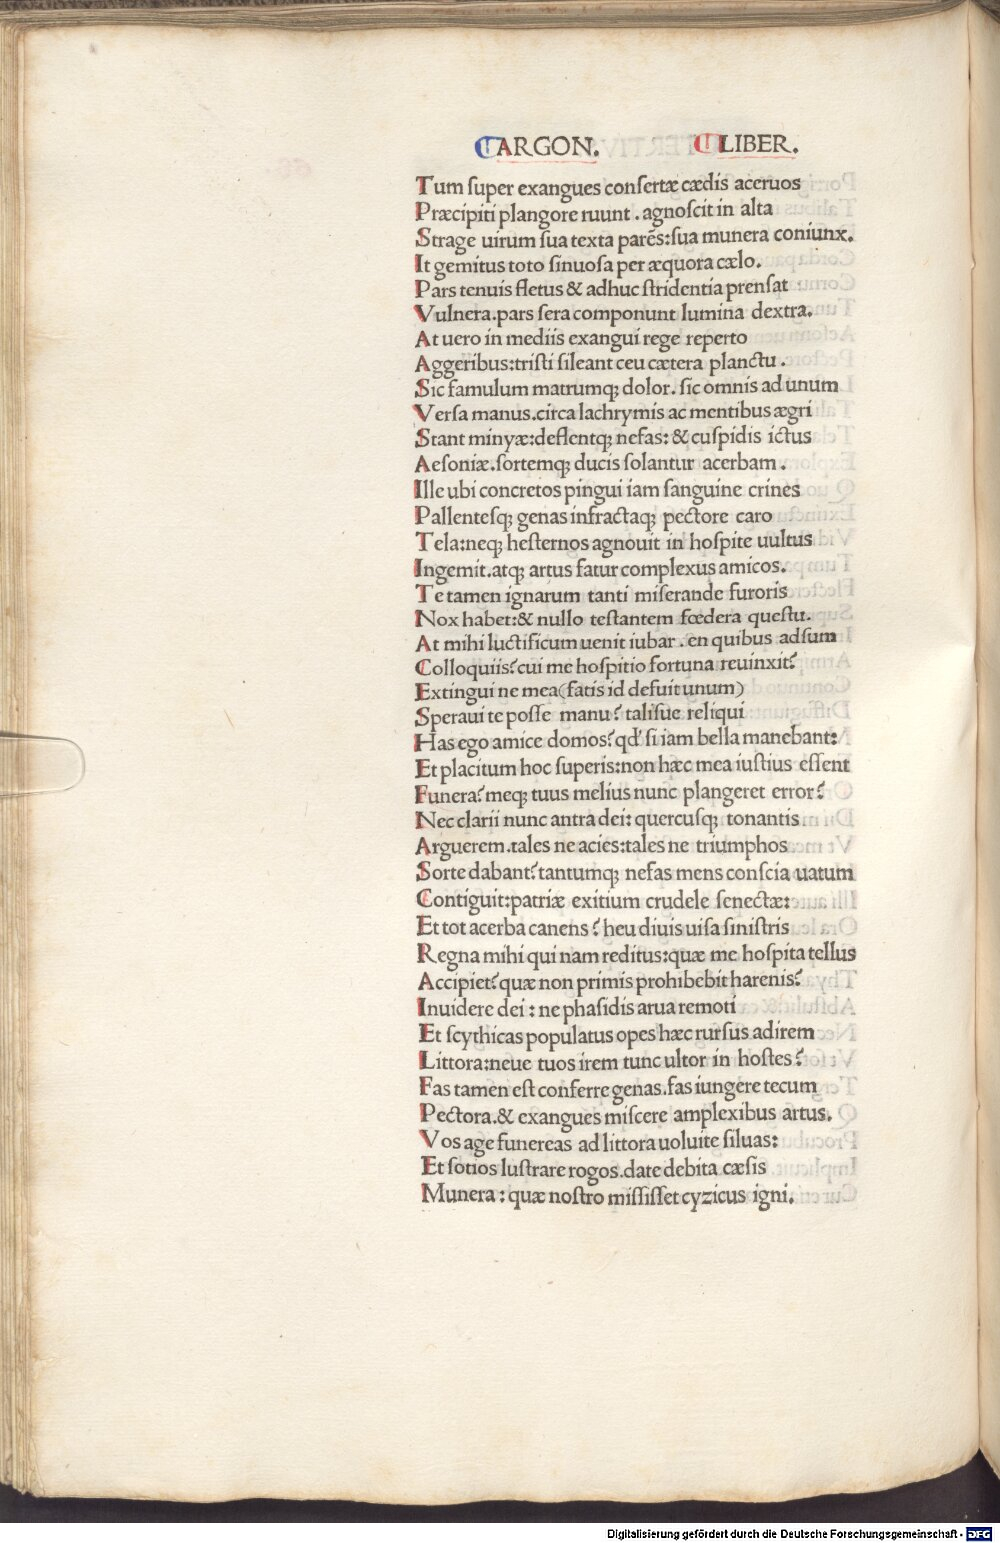 ARGON. LIBER.
Tum ſuper exangues conſertæ cædis aceruos
Præcipiti plangore ruunt . agnoſcit in alta
Strage uirum ſua texta parēs:ſua munera coniunx.
It gemitus toto ſinuoſa per æquora cælo.
Pars tenuis fletus & adhuc ſtridentia prenſat
Vulnera.pars ſera componunt lumina dextra.
At uero in mediis exangui rege reperto
Aggeribus:triſti ſileant ceu cætera planctu .
Sic famulum matrumq; dolor. ſic omnis ad unum
Verſa manus.circa lachrymis ac mentibus ægri
Stant minyæ:deflentq; nefas: & cuſpidis ictus
Aeſoniæ.ſortemq; ducis ſolantur acerbam .
Ille ubi concretos pingui iam ſanguine crines
Pallenteſq; genas infractaq; pectore caro
Tela:neq; heſternos agnouit in hoſpite uultus
Ingemit.atq; artus fatur complexus amicos.
Te tamen ignarum tanti miſerande furoris
Nox habet:& nullo teſtantem fœdera queſtu.
At mihi luctificum uenit iubar . en quibus adſum
Colloquiis? cui me hoſpitio fortuna reuinxit?
Extingui ne mea(fatis id defuit unum)
Speraui te poſſe manu? taliſue reliqui
Has ego amice domos? qd' ſi iam bella manebant:
Et placitum hoc ſuperis:non hæc mea iuſtius eſſent
Funera? meq; tuus melius nunc plangeret error?
Nec clarii nunc antra dei: quercuſq; tonantis
Arguerem.tales ne acies:tales ne triumphos
Sorte dabant? tantumq; nefas mens conſcia uatum
Contiguit:patriæ exitium crudele ſenectæ:
Et tot acerba canens? heu diuis uiſa ſiniſtris
Regna mihi qui nam reditus:quæ me hoſpita tellus
Accipiet? quæ non primis prohibebit harenis?
Inuidere dei : ne phaſidis arua remoti
Et ſcythicas populatus opes hæc rurſus adirem
Littora:neue tuos irem tunc ultor in hoſtes?
Fas tamen eſt conferre genas.fas iungere tecum
Pectora.& exangues miſcere amplexibus artus.
Vos age funereas ad littora uoluite ſiluas:
Et ſotios luſtrare rogos.date debita cæſis
Munera : quæ noſtro miſiſſet cyzicus igni.
Digitalisierung gefördert durch die Deutsche Forschungsgemeinschaft - DFG